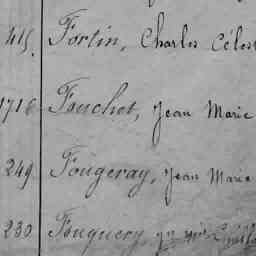 415. Fortin, Charles Céles
1716 Fouchet, Jean Marie
249 Fougeray, Jean Marie
230 Fouguery,